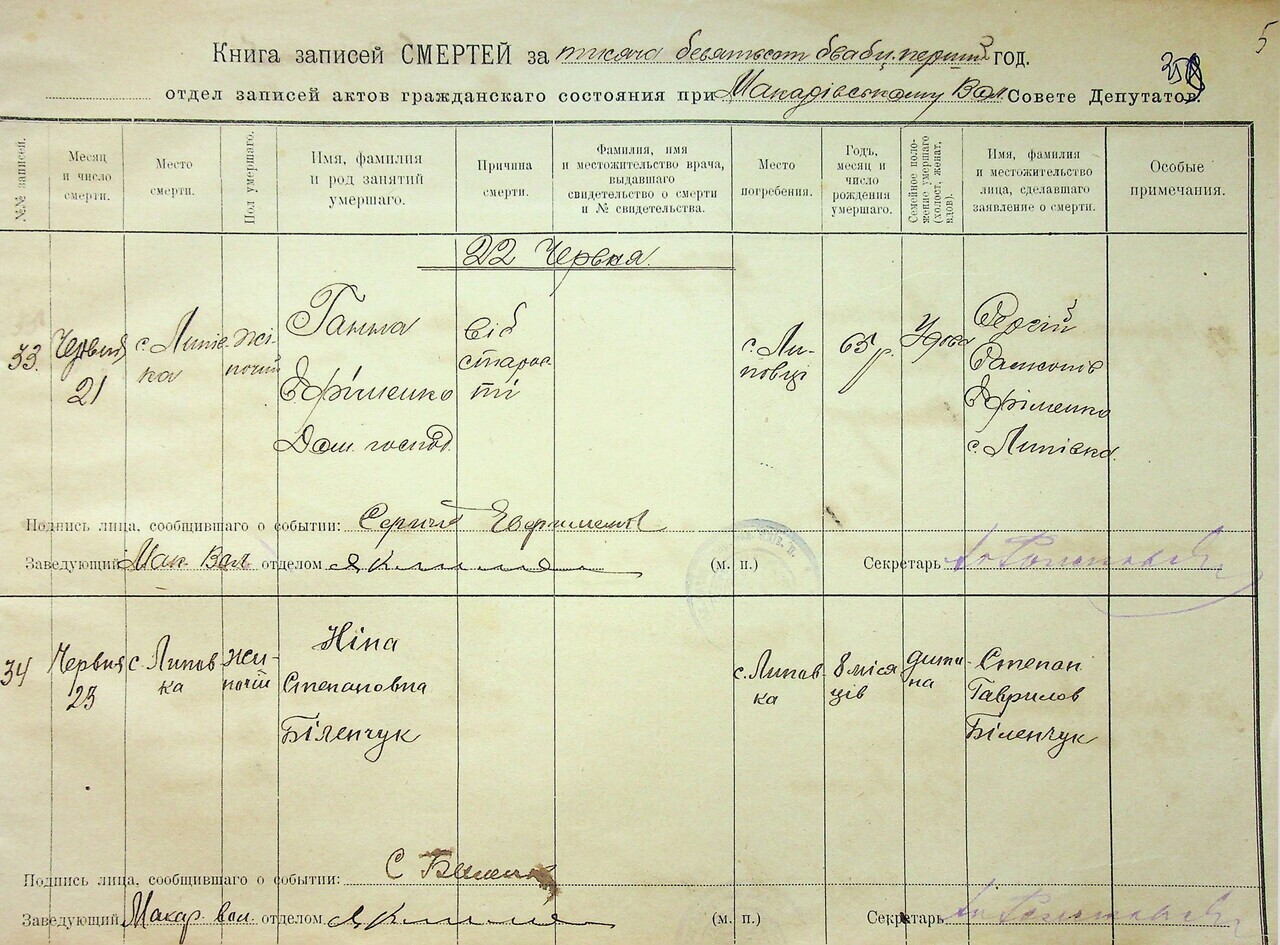 5
Книга записей СМЕРТЕЙ за тисяча девятьсот двадц. перший год.
отдел записей актов гражданскаго состояния при Макарівському Вол. Совете Депутатов.
№№ записей.
Месяц и число смерти.
Место смерти.
Пол умершаго.
Имя, фамилия и род занятий умершаго.
Причина смерти.
Фамилия, имя и местожительство врача, выдавшаго свидетельство о смерти и № свидетельства.
Место погребения.
Годъ, месяц и число рождения умершаго.
Семейное положение умершаго (холост, женат, вдов).
Имя, фамилия и местожительство лица, сделавшаго заявление о смерти.
Особые примечания.
22 Червня.
33.
Червня 21
с. Липівка
жіночий
Ганна
Єфіменко
Дом. господ.
від
старос-
ті
с. Ли-
повці
65 р.
Удова
Сергій
Єфіменко
с. Липівка.
Подпись лица, сообщившаго о событии: Сергий Ефименко
Заведующий Мак. Вол. отделом
(м. п.)
Секретарь
34
Червня 23
с. Липовка
жіночій
Ніна
Степановна
Біленчук
с. Липов-
ка
8 міся
ців
дити-
на
Степан
Гаврилов
Біленчук
Подпись лица, сообщившаго о событии: С
Заведующий Макар. вол. отделом
(м. п.)
Секретарь